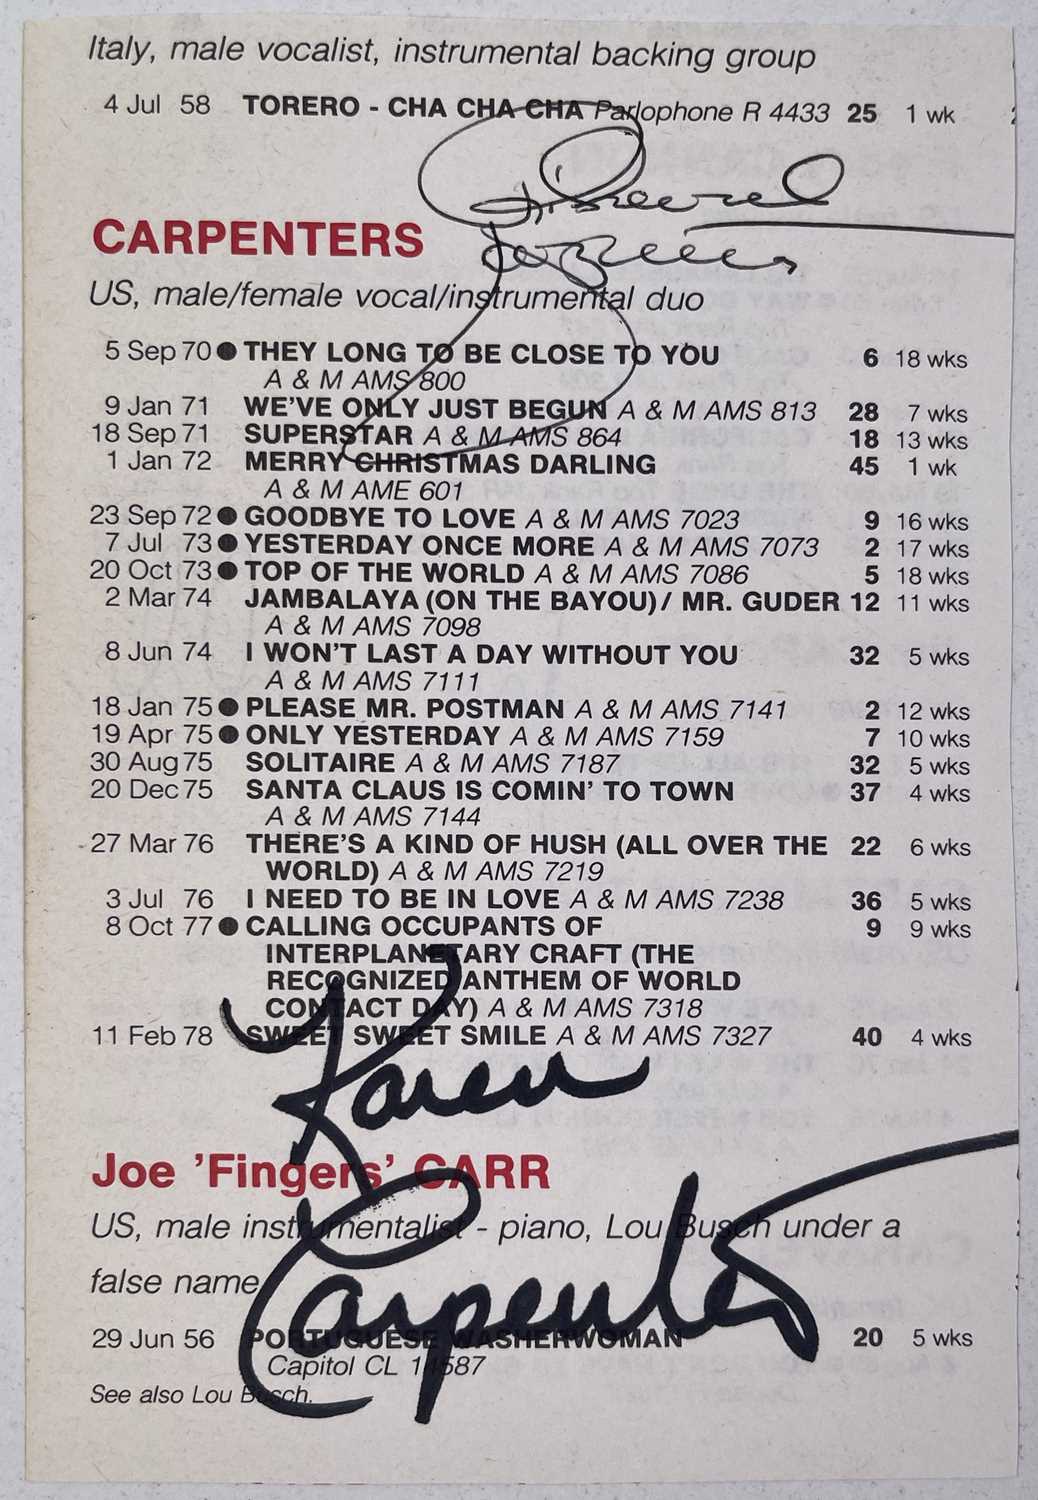 Italy, male vocalist, instrumental backing group
4 Jul 58 TORERO - CHA CHA CHA Parlophone R 4433 25 1 wk
CARPENTERS
US, male/female vocal/instrumental duo
5 Sep 70 ● THEY LONG TO BE CLOSE TO YOU 6 18 wks
A & M AMS 800
9 Jan 71 WE'VE ONLY JUST BEGUN A & M AMS 813 28 7 wks
18 Sep 71 SUPERSTAR A & M AMS 864 18 13 wks
1 Jan 72 MERRY CHRISTMAS DARLING 45 1 wk
A & M AME 601
23 Sep 72 ● GOODBYE TO LOVE A & M AMS 7023 9 16 wks
7 Jul 73 ● YESTERDAY ONCE MORE A & M AMS 7073 2 17 wks
20 Oct 73 ● TOP OF THE WORLD A & M AMS 7086 5 18 wks
2 Mar 74 JAMBALAYA (ON THE BAYOU) / MR. GUDER 12 11 wks
A & M AMS 7098
8 Jun 74 I WON'T LAST A DAY WITHOUT YOU 32 5 wks
A & M AMS 7111
18 Jan 75 ● PLEASE MR. POSTMAN A & M AMS 7141 2 12 wks
19 Apr 75 ● ONLY YESTERDAY A & M AMS 7159 7 10 wks
30 Aug 75 SOLITAIRE A & M AMS 7187 32 5 wks
20 Dec 75 SANTA CLAUS IS COMIN' TO TOWN 37 4 wks
A & M AMS 7144
27 Mar 76 THERE'S A KIND OF HUSH (ALL OVER THE 22 6 wks
WORLD) A & M AMS 7219
3 Jul 76 I NEED TO BE IN LOVE A & M AMS 7238 36 5 wks
8 Oct 77 ● CALLING OCCUPANTS OF 9 9 wks
INTERPLANETARY CRAFT (THE
RECOGNIZED ANTHEM OF WORLD
CONTACT DAY) A & M AMS 7318
11 Feb 78 SWEET SWEET SMILE A & M AMS 7327 40 4 wks
Karen
Joe 'Fingers' CARR
Carpenter
US, male instrumentalist - piano, Lou Busch under a
false name
29 Jun 56 PORTUGUESE WASHERWOMAN 20 5 wks
Capitol CL 14587
See also Lou Busch.